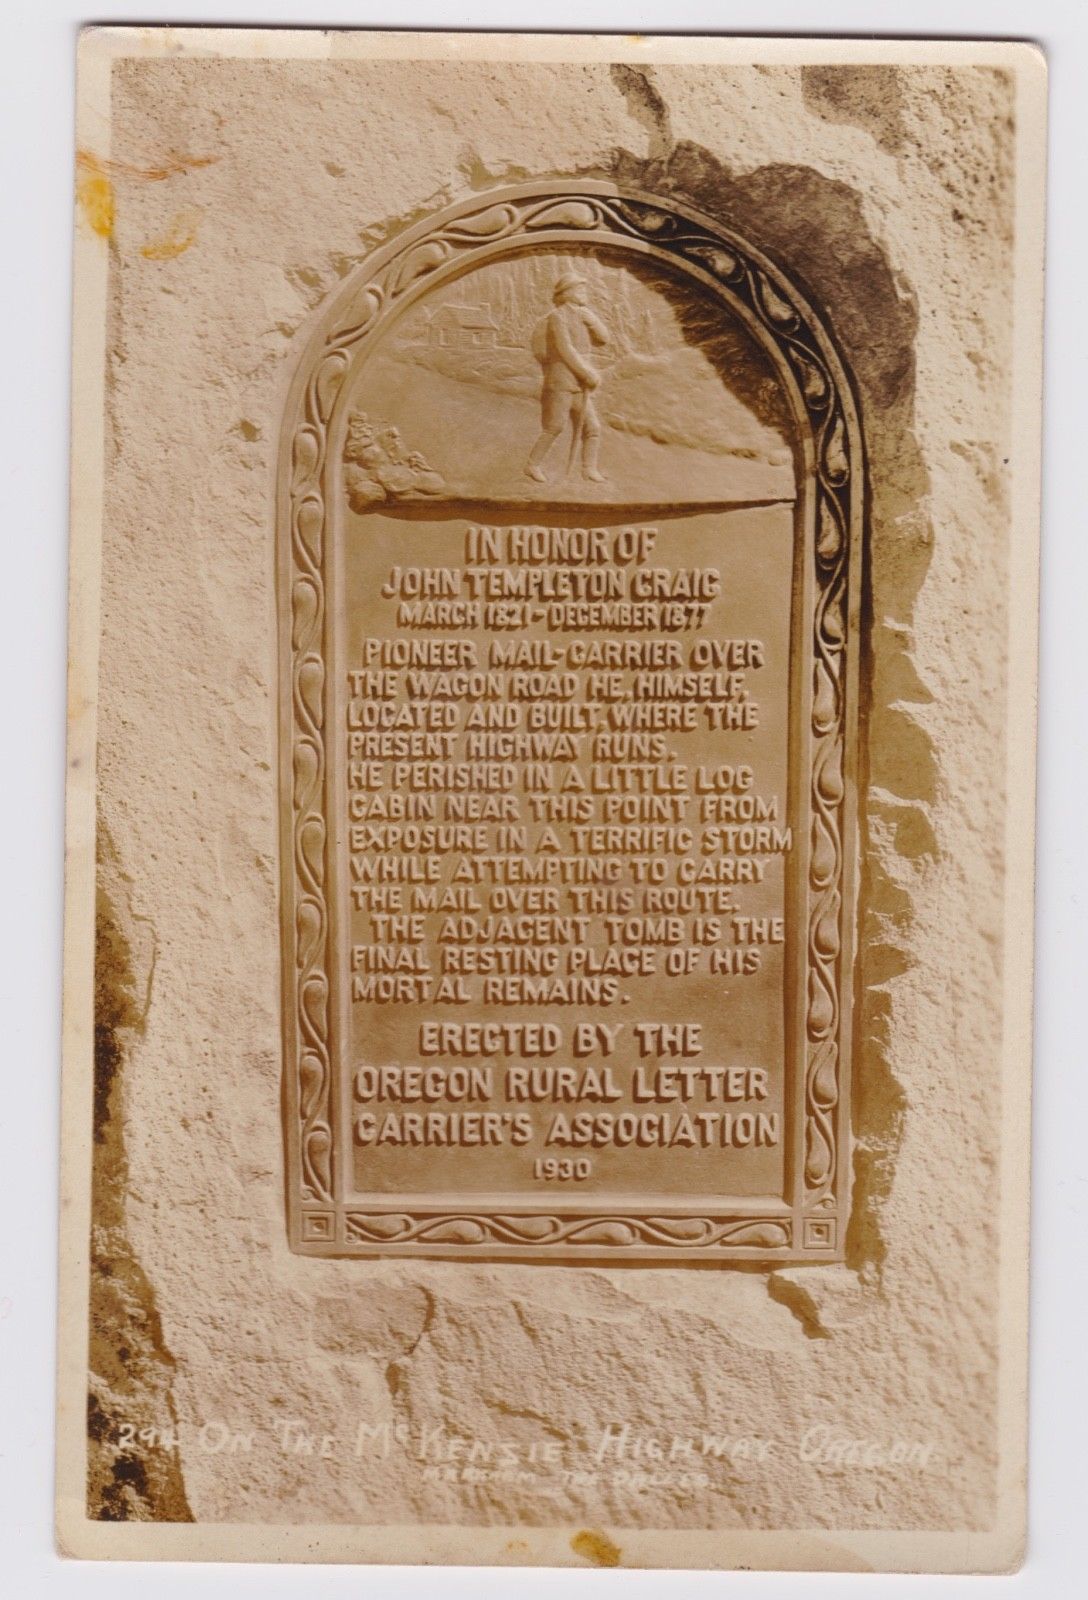 IN HONOR OF
JOHN TEMPLETON CRAIG
MARCH 1821 - DECEMBER 1877
PIONEER MAIL-CARRIER OVER
THE WAGON ROAD HE, HIMSELF,
LOCATED AND BUILT, WHERE THE
PRESENT HIGHWAY RUNS.
HE PERISHED IN A LITTLE LOG
CABIN NEAR THIS POINT FROM
EXPOSURE IN A TERRIFIC STORM
WHILE ATTEMPTING TO CARRY
THE MAIL OVER THIS ROUTE.
THE ADJACENT TOMB IS THE
FINAL RESTING PLACE OF HIS
MORTAL REMAINS.
ERECTED BY THE
OREGON RURAL LETTER
CARRIER'S ASSOCIATION
1930
On The McKensie Highway Oregon
THE DALLES